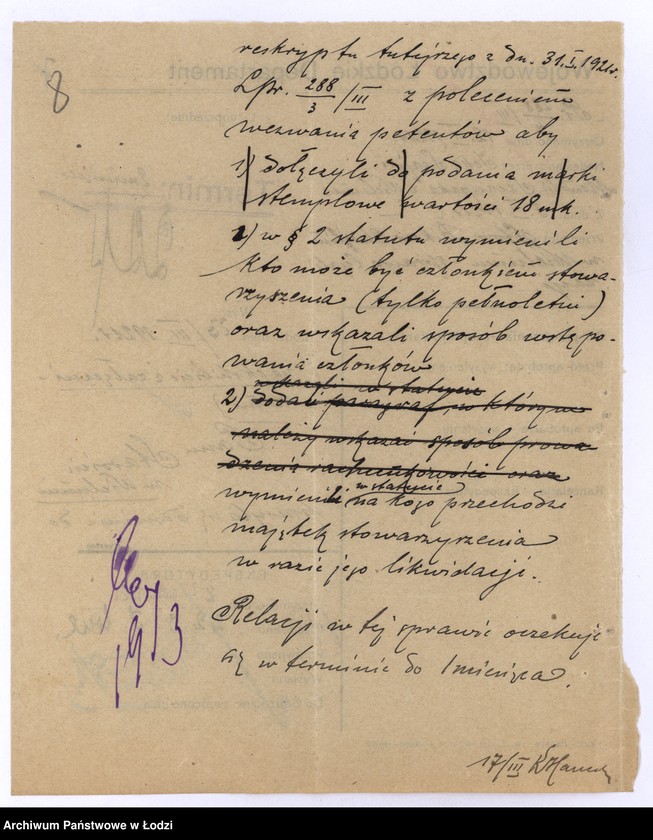 8
reskryptu tutejszego z dn. 31.I.1921r.
L.pr. 288/3/III z poleceniem
wezwania petentów aby
1) dołączyli do podania marki
stemplowe wartości 18 mk.
1) w § 2 statutu wymienili
kto może być członkiem stowa-
rzyszenia (tylko pełnoletni)
oraz wskazali sposób wstępo-
wania członków
wkazali w statucie
2) dodali paragraf w którym
należy wskazać sposób prowa-
dzenia rachunkowości oraz
w statucie
wymienili na kogo przechodzi
majątek stowarzyszenia
w razie jego likwidacji.
Relacji w tej sprawie oczekuje
się w terminie do 1 miesiąca.
19/3
17/III
Archiwum Państwowe w Łodzi